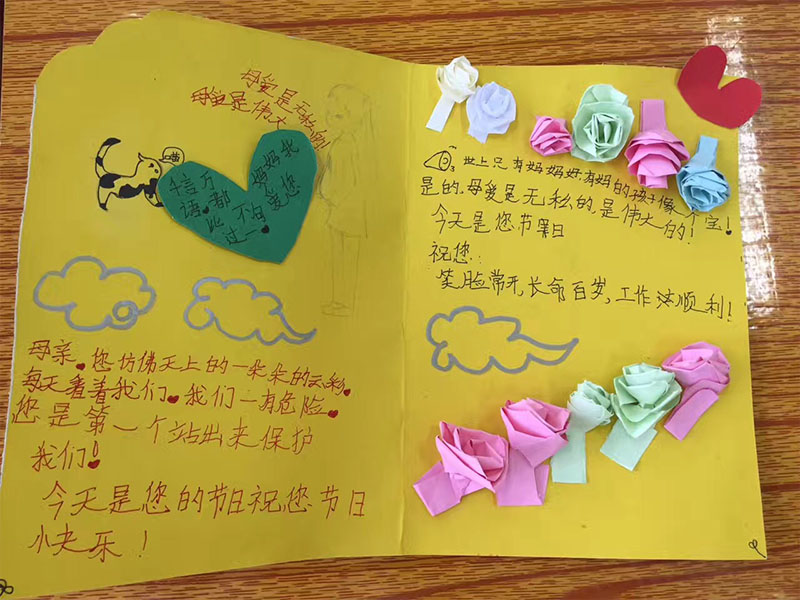 母爱是无私的
母爱是伟大
喵
千言万
语都
比不
过一
妈妈我
爱您
母亲,您仿佛天上的一朵朵的云彩,
每天看着我们。我们一有危险,
您是第一个站出来保护
我们!
今天是您的节日祝您节日
快乐!
世上只有妈妈好有妈的孩子像个宝!
是的,母爱是无私的,是伟大的!
今天是您节日
祝您:
笑脸常开,长命百岁,工作顺利!